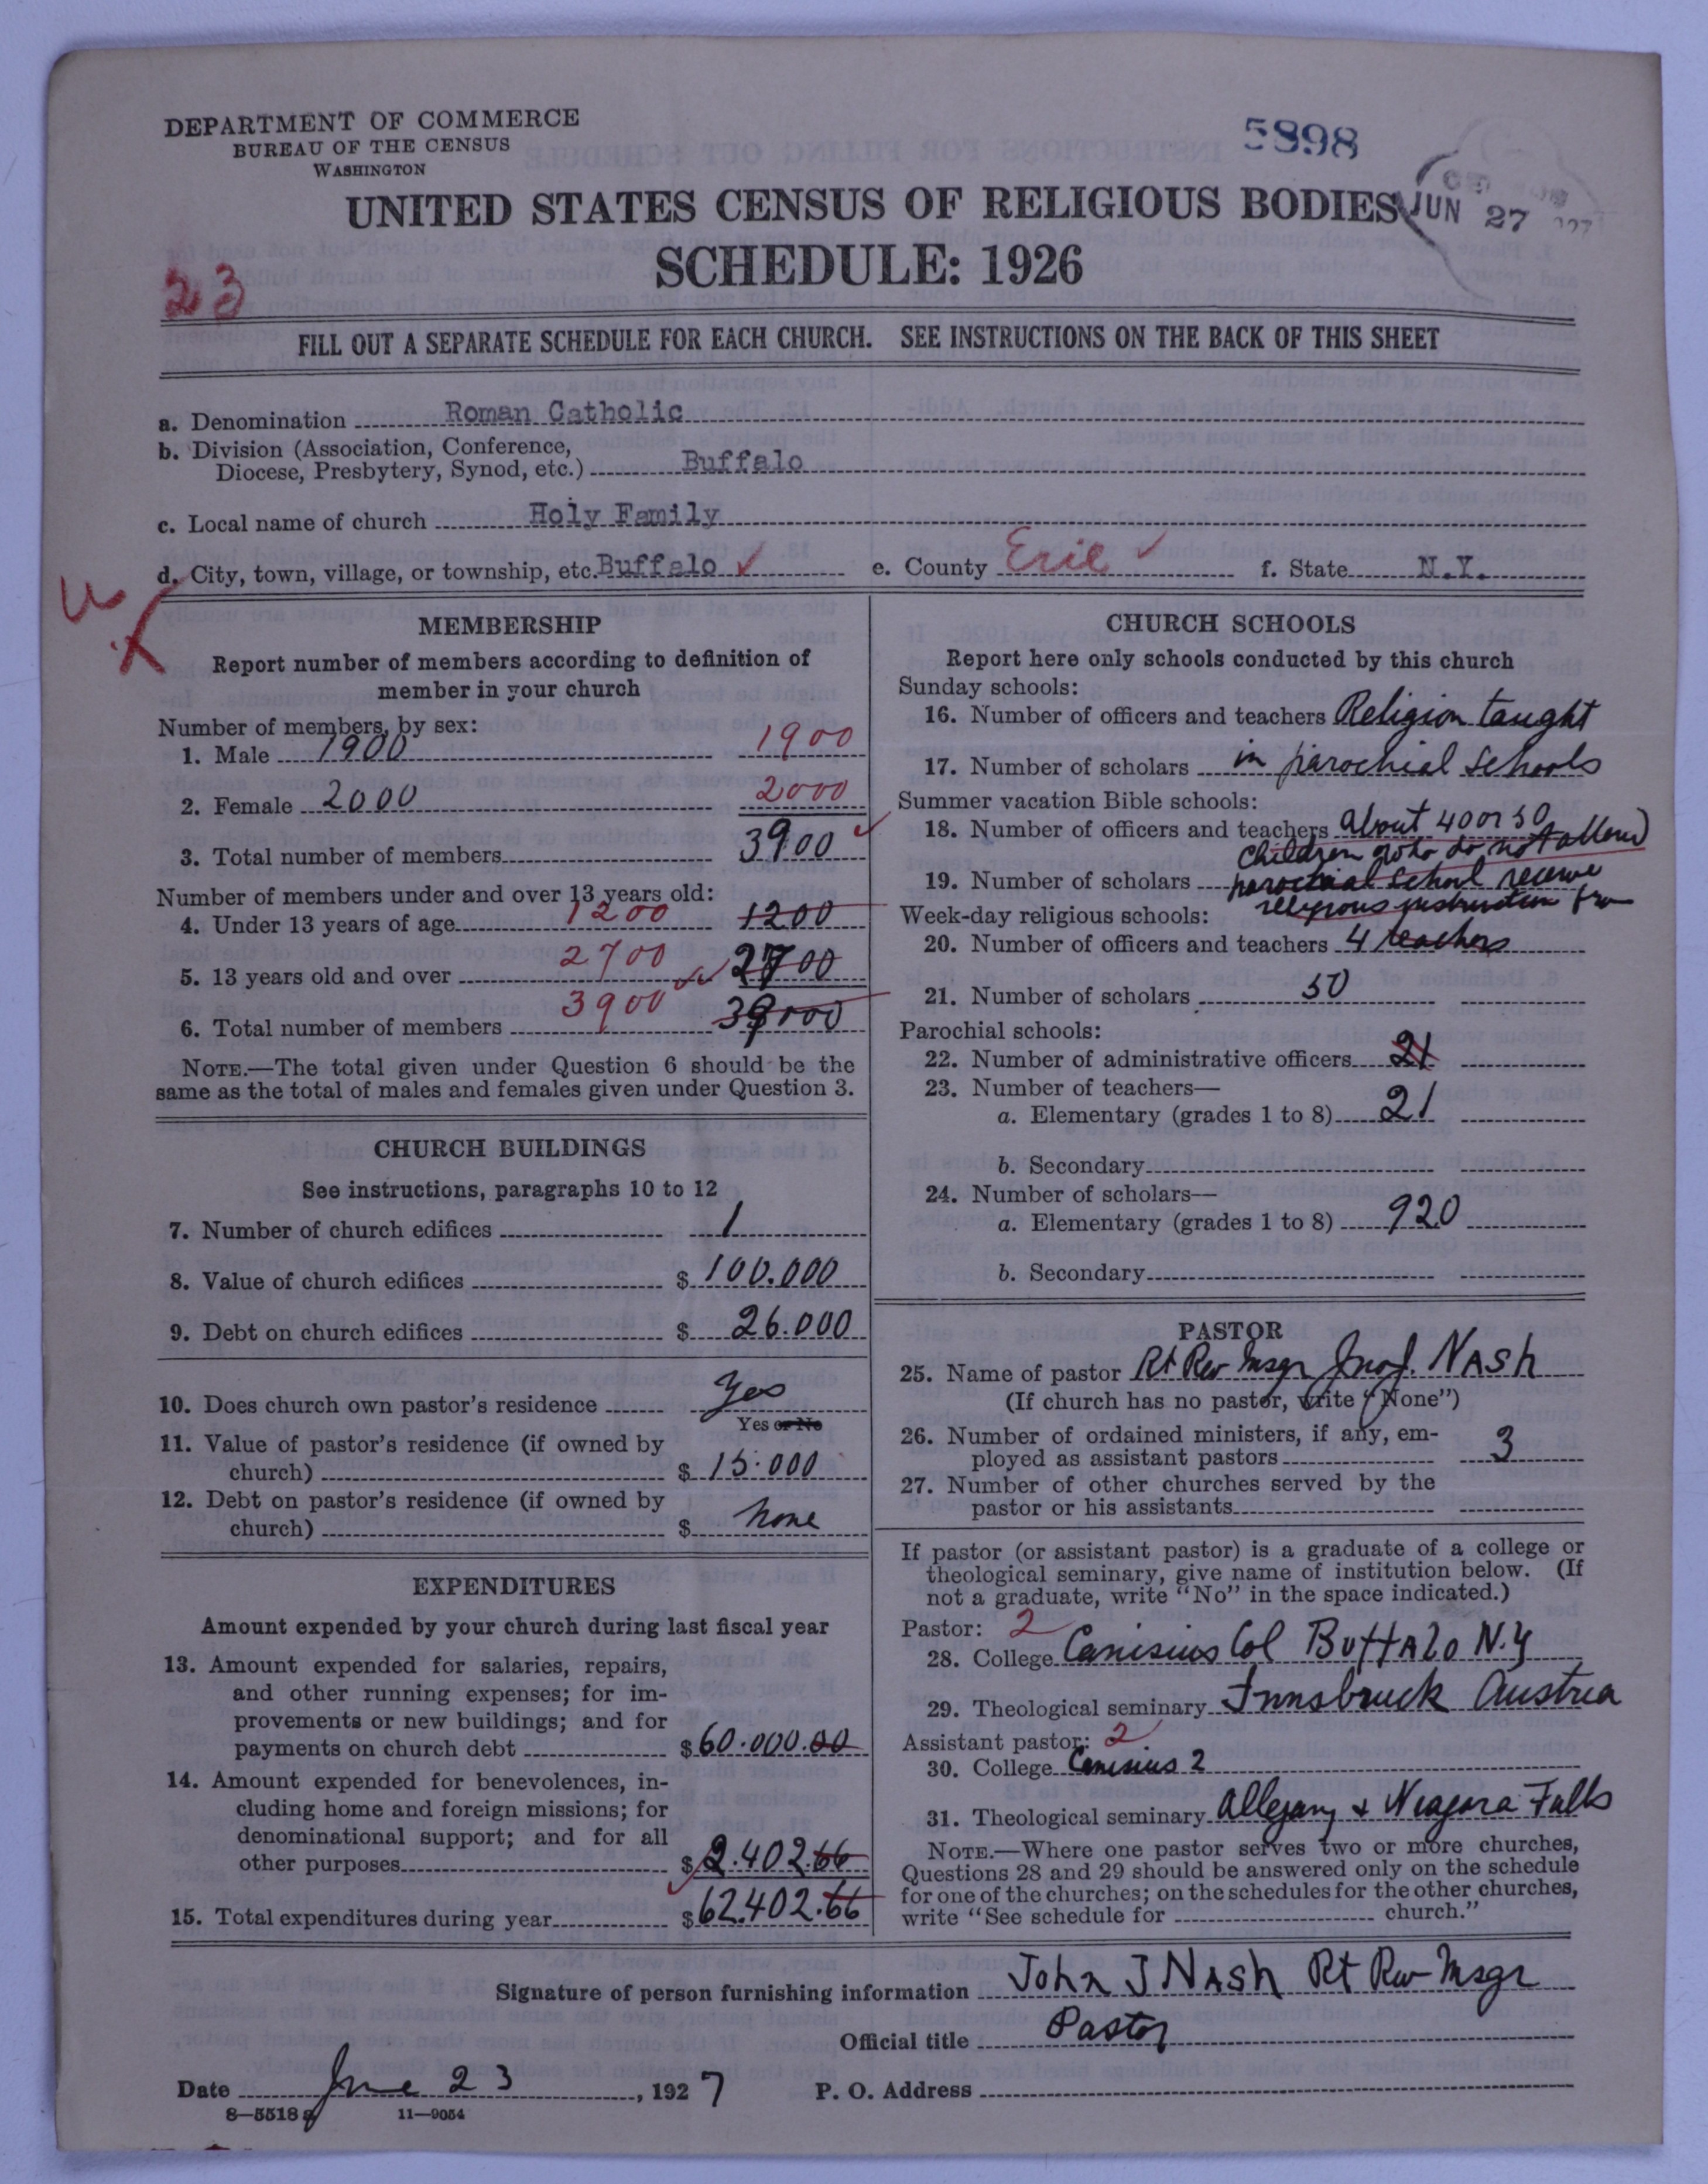 DEPARTMENT OF COMMERCE
BUREAU OF THE CENSUS
WASHINGTON
5898
JUN 27
UNITED STATES CENSUS OF RELIGIOUS BODIES
SCHEDULE: 1926
23
FILL OUT A SEPARATE SCHEDULE FOR EACH CHURCH. SEE INSTRUCTIONS ON THE BACK OF THIS SHEET
a. Denomination Roman Catholic
b. Division (Association, Conference,
Diocese, Presbytery, Synod, etc.) Buffalo
c. Local name of church Holy Family
d. City, town, village, or township, etc. Buffalo e. County Erie f. State N.Y.
MEMBERSHIP
Report number of members according to definition of
member in your church
Number of members, by sex:
1. Male 1900 1900
2. Female 2000 2000
3. Total number of members 3900
Number of members under and over 13 years old:
4. Under 13 years of age 1200 1200
5. 13 years old and over 2700 2700
6. Total number of members 3900 39000
NOTE.—The total given under Question 6 should be the
same as the total of males and females given under Question 3.
CHURCH BUILDINGS
See instructions, paragraphs 10 to 12
7. Number of church edifices 1
8. Value of church edifices $ 100.000
9. Debt on church edifices $ 26.000
10. Does church own pastor's residence Yes
Yes or No
11. Value of pastor's residence (if owned by
church) $ 15.000
12. Debt on pastor's residence (if owned by
church) $ None
EXPENDITURES
Amount expended by your church during last fiscal year
13. Amount expended for salaries, repairs,
and other running expenses; for im-
provements or new buildings; and for
payments on church debt $ 60.000.00
14. Amount expended for benevolences, in-
cluding home and foreign missions; for
denominational support; and for all
other purposes $ 2.402.66
15. Total expenditures during year $ 62.402.66
CHURCH SCHOOLS
Report here only schools conducted by this church
Sunday schools:
16. Number of officers and teachers Religion taught
17. Number of scholars in parochial schools
Summer vacation Bible schools:
18. Number of officers and teachers about 40 or 50
children who do not attend
19. Number of scholars parochial school receive
Week-day religious schools: religious instruction from
20. Number of officers and teachers 4 teachers
21. Number of scholars 50
Parochial schools:
22. Number of administrative officers 21
23. Number of teachers—
a. Elementary (grades 1 to 8) 21
b. Secondary
24. Number of scholars—
a. Elementary (grades 1 to 8) 920
b. Secondary
PASTOR
25. Name of pastor Rt Rev Msgr Jno J. Nash
(If church has no pastor, write "None")
26. Number of ordained ministers, if any, em-
ployed as assistant pastors 3
27. Number of other churches served by the
pastor or his assistants
If pastor (or assistant pastor) is a graduate of a college or
theological seminary, give name of institution below. (If
not a graduate, write "No" in the space indicated.)
Pastor: 2
28. College Canisius Col Buffalo N.Y
29. Theological seminary Innsbruck Austria
Assistant pastor: 2
30. College Canisius 2
31. Theological seminary Allegany & Niagara Falls
NOTE.—Where one pastor serves two or more churches,
Questions 28 and 29 should be answered only on the schedule
for one of the churches; on the schedules for the other churches,
write "See schedule for church."
Signature of person furnishing information John J Nash Rt Rev Msgr
Official title Pastor
Date June 23, 1927 P. O. Address
8—5518a 11—9054